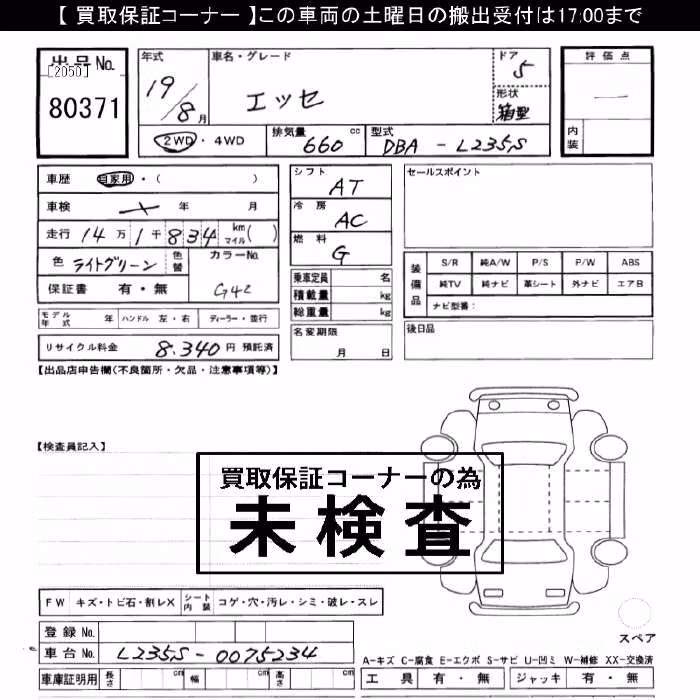 【 買取保証コーナー 】この車両の土曜日の搬出受付は17:00まで
出品No.
[2050]
80371
年式 19/8月
車名・グレード エッセ
ドア 5
形状 箱型
評価点 —
内装
2WD・4WD
排気量 660 cc
型式 DBA - L235S
車歴 自家用・( )
車検 年 月
走行 14万1千834 km マイル ( )
色 ライトグリーン 色替
カラーNo. G42
保証書 有・無
モデル年式 年 ハンドル 左・右 ディーラー・並行
リサイクル料金 8.340 円 預託済
シフト AT
冷房 AC
燃料 G
乗車定員 名
積載量 kg
総重量 kg
名変期限 月 日
セールスポイント
装備品
S/R 純A/W P/S P/W ABS
純TV 純ナビ 革シート 外ナビ エアB
ナビ型番:
後日品
【出品店申告欄(不良箇所・欠品・注意事項等)】
【検査員記入】
買取保証コーナーの為
未検査
FW キズ・トビ石・割レX シート内装 コゲ・穴・汚レ・シミ・破レ・スレ
登録No.
車台No. L235S-0075234
車庫証明用 長さ cm 幅 cm 高さ cm
スペア
A-キズ C-腐食 E-エクボ S-サビ U-凹ミ W-補修 XX-交換済
工具 有・無 ジャッキ 有・無